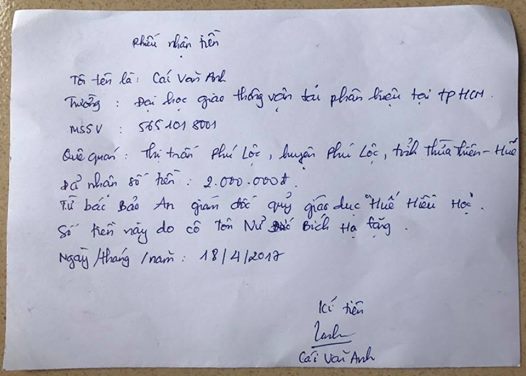 Phiếu nhận tiền
Tôi tên là: Cái Vân Anh
Trường : Đại học giao thông vận tải phân hiệu tại TPHCM.
MSSV : 5651018001
Quê quán : Thị trấn Phú Lộc, huyện Phú Lộc, tỉnh Thừa Thiên - Huế
Đã nhận số tiền : 2.000.000đ.
Từ bác Bảo An giám đốc quỹ giáo dục "Huế Hiếu Học".
Số tiền này do cô Tôn Nữ Bích Hạ tặng.
Ngày /tháng /năm : 18/4/2017
Kí tên
Cái Vân Anh